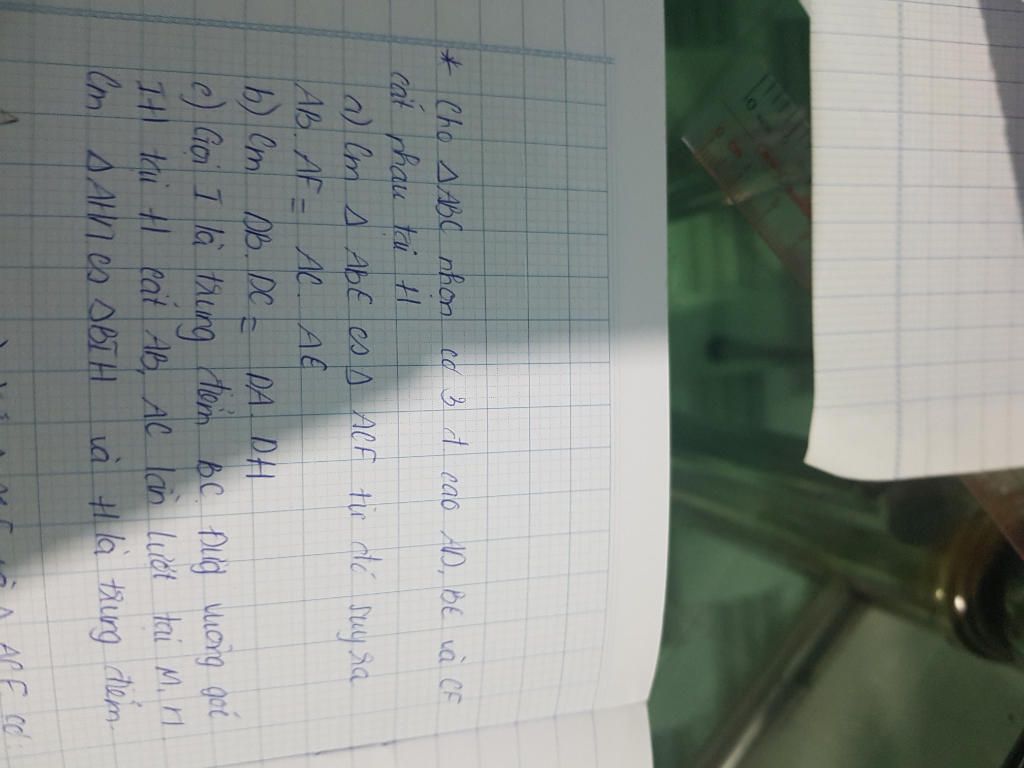 * Cho ΔABC nhọn có 3 đ cao AD, BE và CF
cắt nhau tại H
a) Cm Δ ABE ∽ Δ ACF từ đó suy ra
AB. AF = AC. AE
b) Cm DB. DC = DA. DH
c) Gọi I là trung điểm BC. Đường vuông góc
IH tại H cắt AB, AC lần lượt tại M, N
Cm ΔAHN ∽ ΔBIH và H là trung điểm.
ACF có